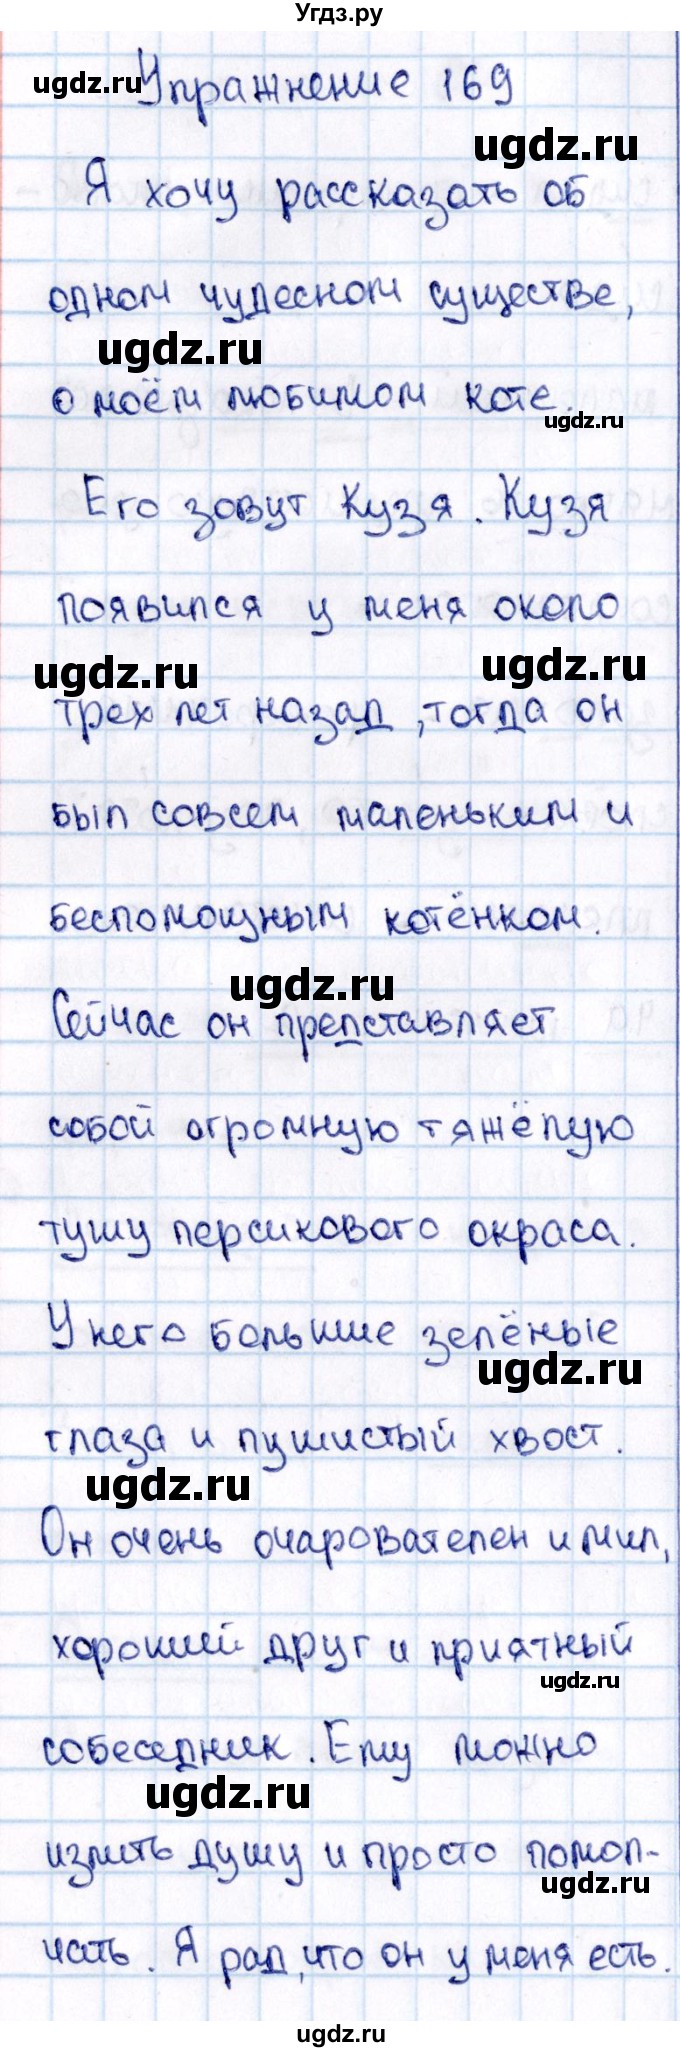 Угдз.ру
ugdz.ru
Упражнение 169
ugdz.ru
Я хочу рассказать об
одном чудесном существе,
ugdz.ru
о моём любимом коте.
ugdz.ru
Его зовут Кузя. Кузя
появился у меня около
ugdz.ru
ugdz.ru
трех лет назад, тогда он
был совсем маленьким и
беспомощным котёнком.
ugdz.ru
Сейчас он представляет
собой огромную тяжёлую
тушу персикового окраса.
У него большие зелёные
ugdz.ru
глаза и пушистый хвост.
ugdz.ru
Он очень очарователен и мил,
хороший друг и приятный
ugdz.ru
собеседник. Ему можно
ugdz.ru
излить душу и просто помол-
ugdz.ru
чать. Я рад, что он у меня есть.
ugdz.ru